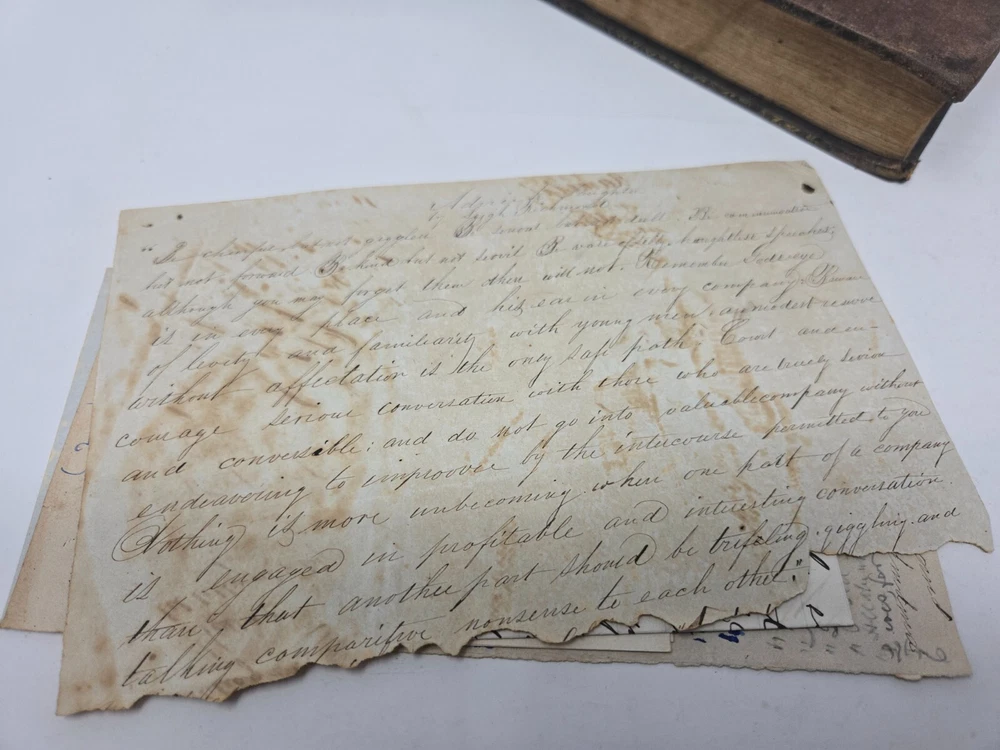 Legh Richmond
"Be cheerful but not gigglers. Be serious but not dull. Be communicative
but not forward. Be kind but not servil. Beware of silly, thoughtless speeches;
although you may forget them others will not. Remember Gods eye
is in every place and his ear in every company. Beware
of levity and familiarity with young men, a modest reserve
without affectation is the only safe path; Court and en-
courage serious conversation with those who are truely serious
and conversible: and do not go into valuable company without
endeavoring to improove by the intercourse permitted to you
Nothing is more unbecoming when one part of a company
is engaged in profitable and interesting conversation
than that another part should be trifeling, giggling and
talking comparitive nonsense to each other."